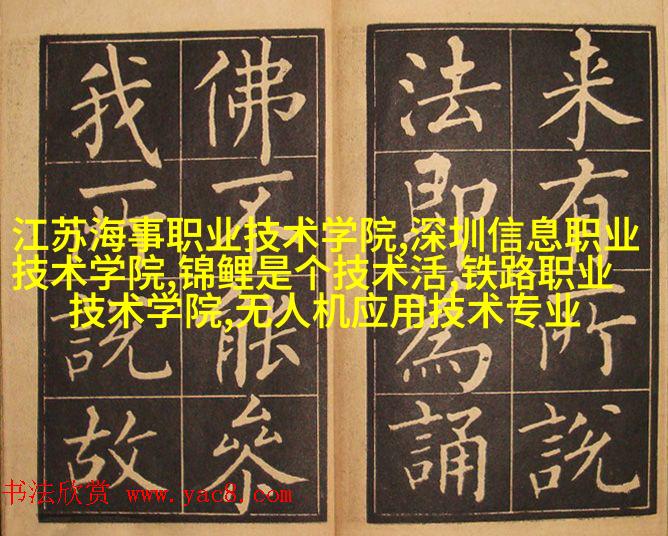 来有所說
法即為誦
佛不能參
我說故
江苏海事职业技术学院,深圳信息职业
技术学院,锦鲤是个技术活,铁路职业
技术学院,无人机应用技术专业
书法欣赏 www.yac8.com